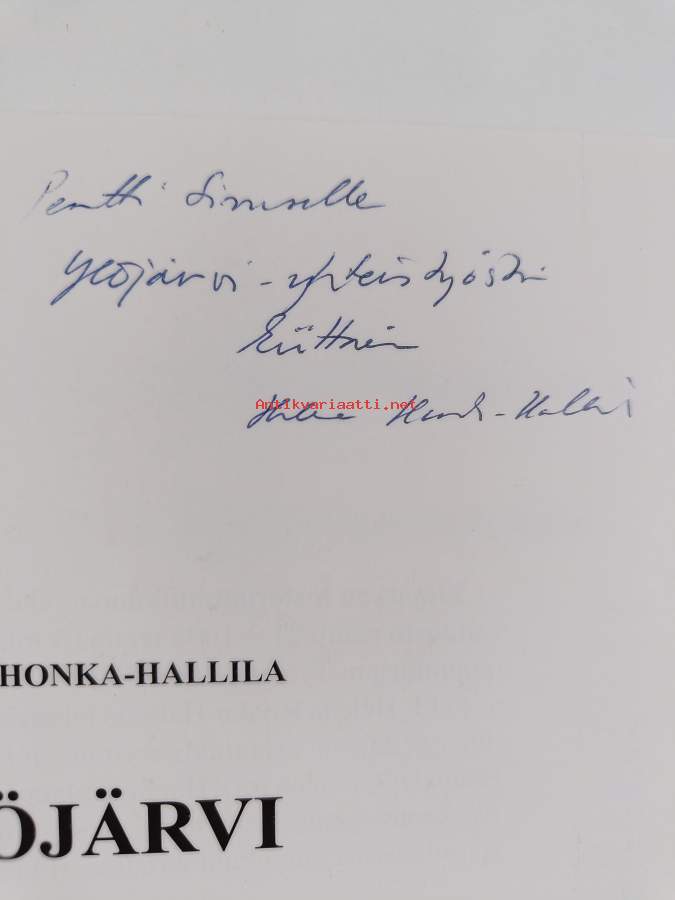 Pentti Siruselle
Ylöjärvi-yhteistyöstä
kiittäen
Antikvariaatti.net
Honka-Hallila
HONKA-HALLILA
ÖJÄRVI